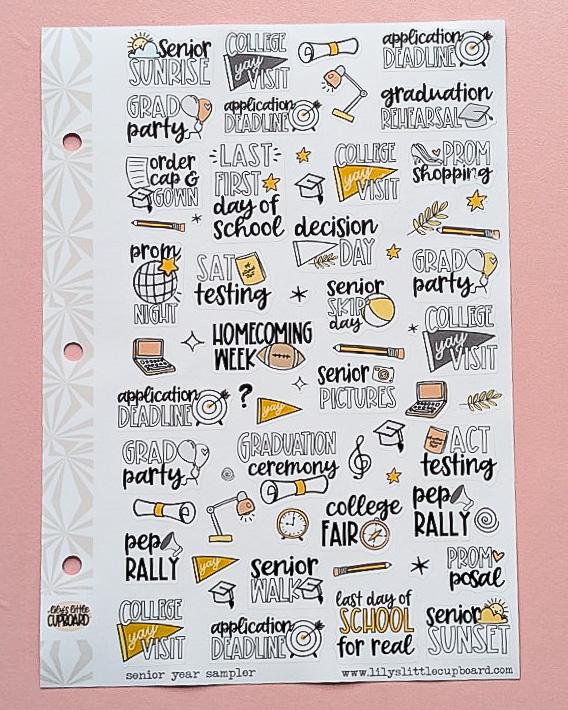 senior
SUNRISE
COLLEGE
yay
VISIT
application
DEADLINE
GRAD
party
application
DEADLINE
graduation
REHEARSAL
order
cap &
GOWN
LAST
FIRST
day of
school
COLLEGE
yay
VISIT
PROM
shopping
decision
DAY
prom
NIGHT
SAT
testing
GRAD
party
senior
SKIP
day
COLLEGE
yay
VISIT
HOMECOMING
WEEK
senior
PICTURES
application
DEADLINE
?
yay
GRAD
party
GRADUATION
ceremony
ACT
testing
college
FAIR
pep
RALLY
pep
RALLY
yay
senior
WALK
PROM
posal
COLLEGE
yay
VISIT
application
DEADLINE
last day of
SCHOOL
for real
senior
SUNSET
lily's little
CUPBOARD
senior year sampler
www.lilyslittlecupboard.com